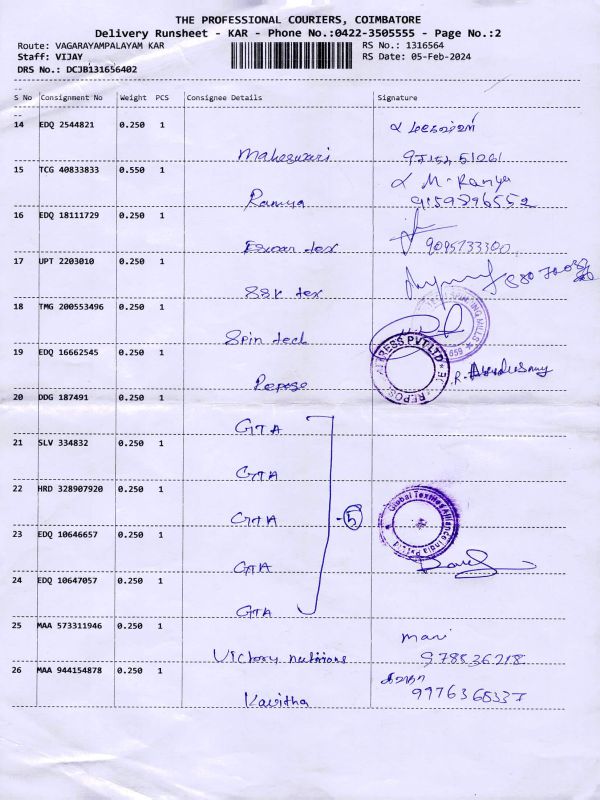 THE PROFESSIONAL COURIERS, COIMBATORE
Delivery Runsheet - KAR - Phone No.:0422-3505555 - Page No.:2
Route: VAGARAYAMPALAYAM KAR RS No.: 1316564
Staff: VIJAY RS Date: 05-Feb-2024
DRS No.: DCJB131656402
S No Consignment No Weight PCS Consignee Details Signature
14 EDQ 2544821 0.250 1
Maheswari
15 TCG 40833833 0.550 1 M-Ramya
Ramya 9159896552
16 EDQ 18111729 0.250 1
tex 9095733300
17 UPT 2203010 0.250 1
SSK tex
18 TMG 200553496 0.250 1
Spin tech
19 EDQ 16662545 0.250 1
Repose
20 DDG 187491 0.250 1
GTA
21 SLV 334832 0.250 1
GTA
22 HRD 328907920 0.250 1
GTA 5 Global Textiles Alliance India Pvt Ltd
23 EDQ 10646657 0.250 1
GTA
24 EDQ 10647057 0.250 1
GTA
25 MAA 573311946 0.250 1 mari
Victory 978536218
26 MAA 944154878 0.250 1
Kavitha 9976365337